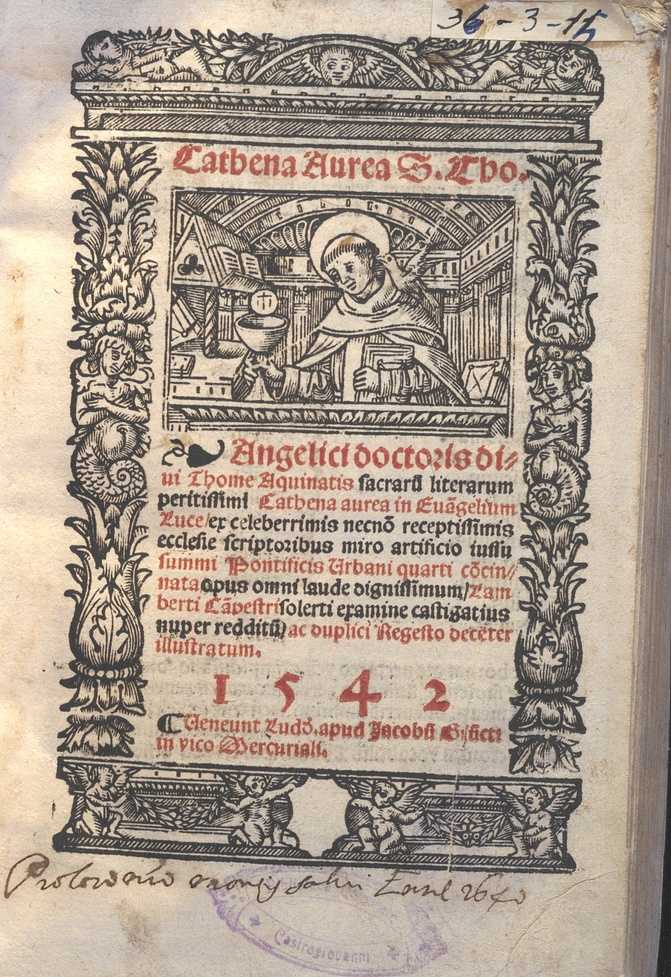 36-3-15
Cathena Aurea S. Tho.
Angelici doctoris di⸗
ui Thome Aquinatis sacrarū literarum
peritissimi Cathena aurea in Euāgelium
Luce/ex celeberrimis necnō receptissimis
ecclesie scriptoribus miro artificio iussu
summi Pontificis Urbani quarti cōcin⸗
nata opus omni laude dignissimum/Lam
berti Cāpestri solerti examine castigatius
nuper redditū/ac duplici Regesto decēter
illustratum.
1542
Veneunt Lugd. apud Jacobū Giūcti
in vico Mercuriali.
Castrogiovanni